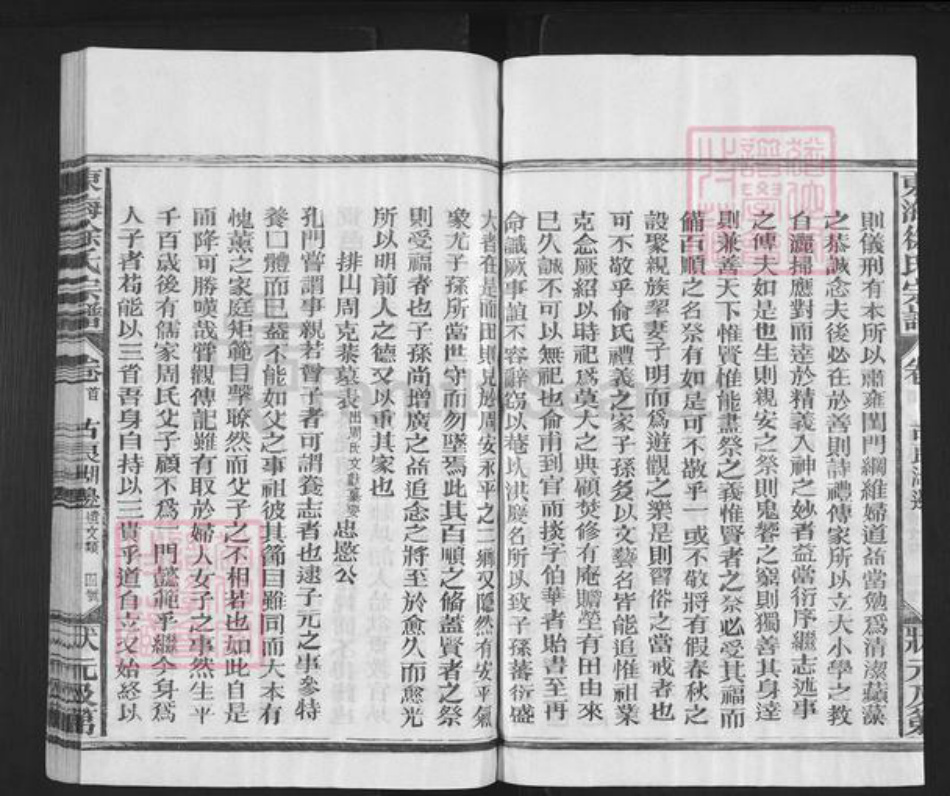 則儀刑有本所以肅雍閨門綱維婦道益當勉爲清潔蘋藻
之恭誠念夫後必在於善則詩禮傳家所以立大小學之教
自灑掃應對而達於精義入神之妙者益當衍序繼志述事
之傳夫如是也生則親安之祭則鬼饗之窮則獨善其身達
則兼善天下惟賢惟能盡祭之義惟賢者之祭必受其福而
備百順之名祭有如是可不敬乎一或不敬將有假春秋之
設聚親族挈妻子明而爲遊觀之樂是則習俗之當戒者也
可不敬乎俞氏禮義之家子孫多以文藝名皆能追惟祖業
克念厥紹以時祀爲莫大之典顧焚修有庵贍塋有田由來
已久誠不可以無祀也俞甫到官而掞字伯華者貽書至再
命識厥事誼不容辭竊以巷以淇慶名所以致子孫蕃衍盛
大者在是而田則見於周安永平之二鄉又隱然有安平氣
象尤子孫所當世守而勿墜焉此其百順之備蓋賢者之祭
則受福者也子孫尚增廣之益追念之將至於愈久而愈光
所以明前人之德又以重其家也
排山周克恭墓表 出周氏文獻纂要 忠愍公
孔門嘗謂事親若曾子者可謂養志者也逮子元之事參特
養口體而已蓋不能如父之事祖彼其節目雖同而大本有
愧薰之家庭矩範目擊瞭然而父子之不相若也如此自是
而降可勝嘆哉嘗觀傳記雖有取於婦人女子之事然生平
千百歲後有儒家周氏父子顧不爲一門懿範乎繼今身爲
人子者苟能以三省吾身自持以三貫乎道自立又始終以
東海徐氏宗譜 卷首 古良潤邊 遺文類 狀元及第